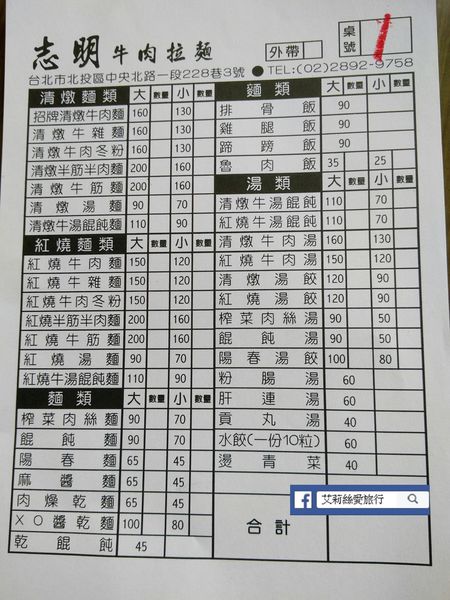 志明牛肉拉麵
外帶
桌號 1
台北市北投區中央北路一段228巷3號 ● TEL:(02)2892-9758
清燉麵類 大 數量 小 數量
招牌清燉牛肉麵 160 130
清燉牛雜麵 160 130
清燉牛肉冬粉 160 130
清燉半筋半肉麵 200 160
清燉牛筋麵 200 160
清燉湯麵 90 70
清燉牛湯餛飩麵 110 90
紅燒麵類 大 數量 小 數量
紅燒牛肉麵 150 120
紅燒牛雜麵 150 120
紅燒牛肉冬粉 150 120
紅燒半筋半肉麵 200 160
紅燒牛筋麵 200 160
紅燒湯麵 90 70
紅燒牛湯餛飩麵 110 90
麵類 大 數量 小 數量
榨菜肉絲麵 90 70
餛飩麵 90 70
陽春麵 65 45
麻醬麵 65 45
肉燥乾麵 65 45
XO醬乾麵 100 80
乾餛飩 45
麵類 大 數量 小 數量
排骨飯 90
雞腿飯 90
蹄膀飯 90
魯肉飯 35 25
湯類 大 數量 小 數量
清燉牛湯餛飩 110 70
紅燒牛湯餛飩 110 70
清燉牛肉湯 160 130
紅燒牛肉湯 150 120
清燉湯餃 120 90
紅燒湯餃 120 90
榨菜肉絲湯 90 50
餛飩湯 90 50
陽春湯餃 100 80
粉腸湯 60
肝連湯 60
貢丸湯 40
水餃(一份10粒) 60
燙青菜 40
f 艾莉絲愛旅行
合計